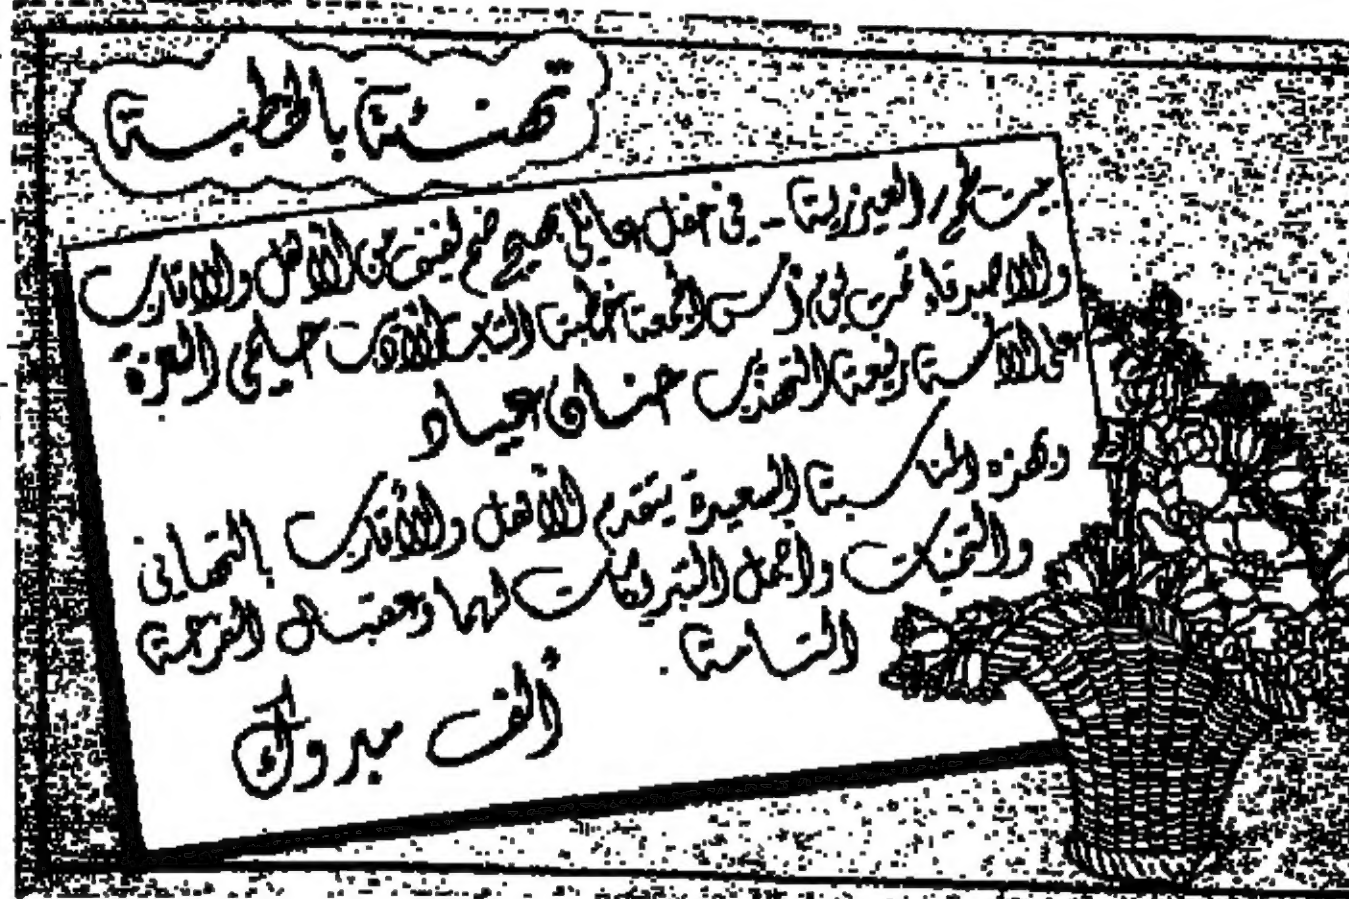 تهنئة بالخطبة
بيت لحم / العيزرية - في حفل عائلي بهيج ضم لفيف من الأهل والأقارب
والاصدقاء تمت يوم أمس الجمعة خطبة الشاب الأديب حلمي العزة
على الآنسة رفيعة التهذيب حنان عياد
وبهذه المناسبة السعيدة يتقدم الأهل والأقارب بالتهاني
والتمنيات وأجمل التبريكات لهما وعقبال الفرحة
التامة .
ألف مبروك